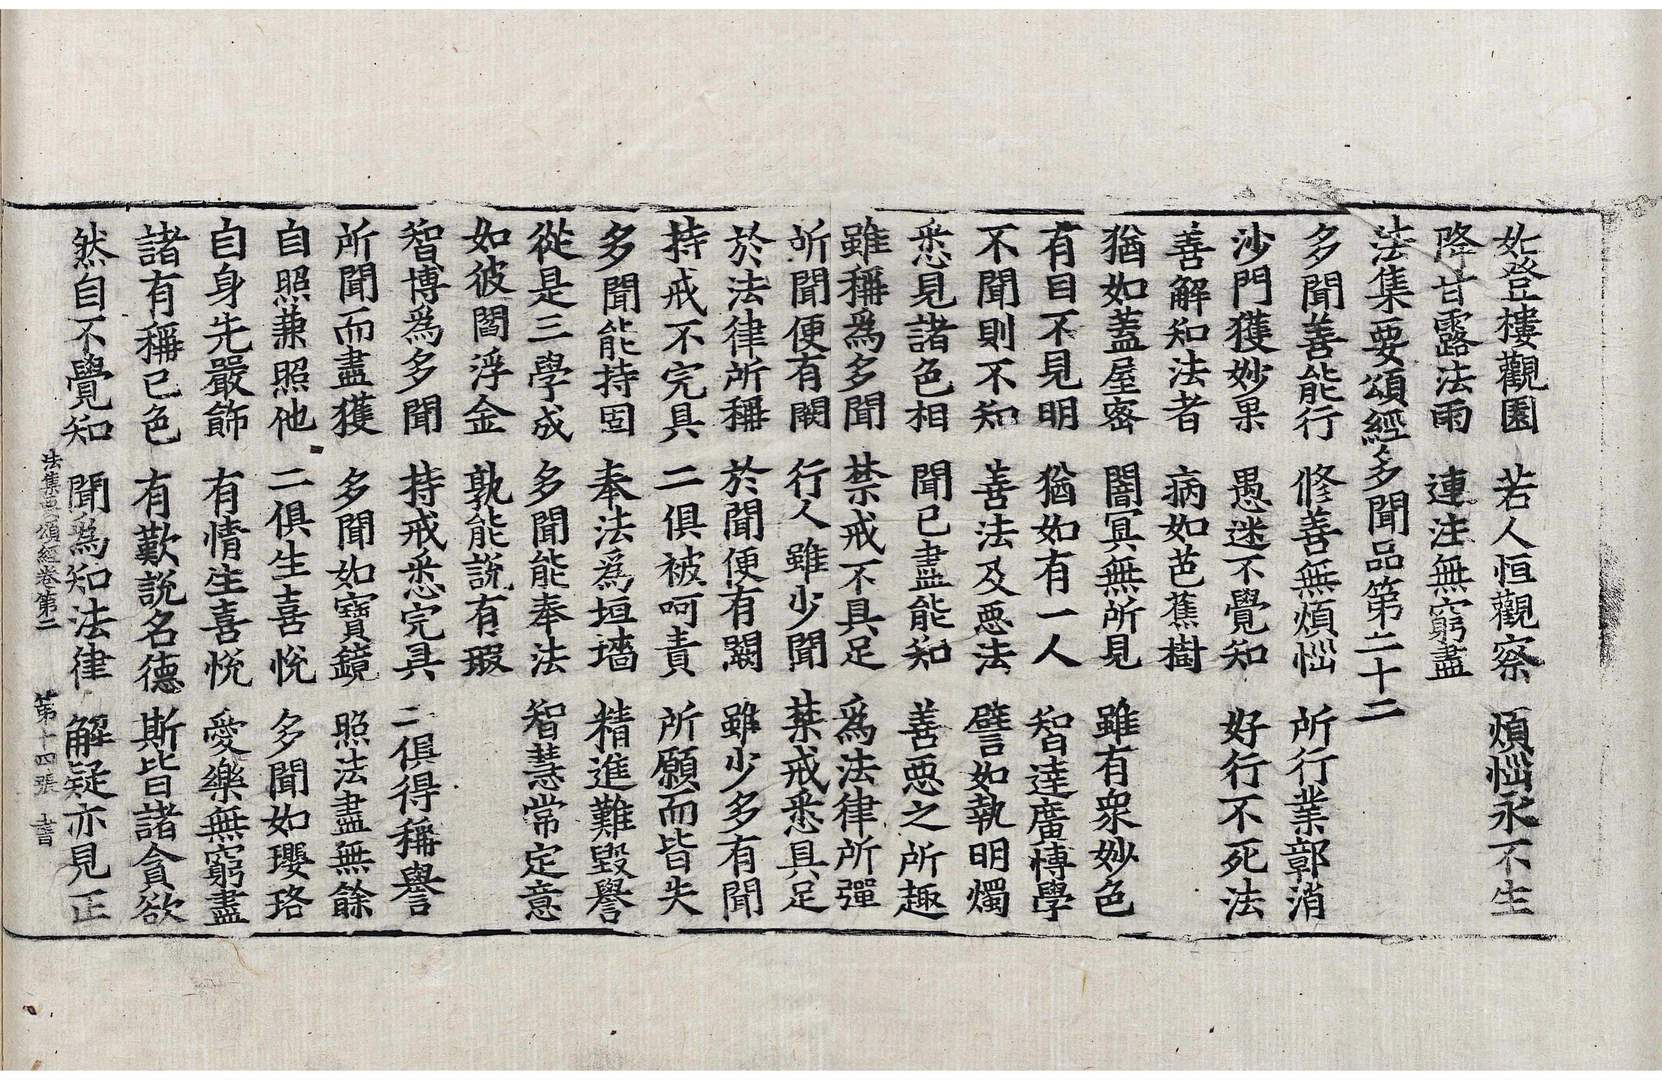 如登樓觀園 若人恒觀察 煩惱永不生
降甘露法雨 連注無窮盡
法集要頌經多聞品第二十二
多聞善能行 修善無煩惱 所行業鄣消
沙門獲妙果 愚迷不覺知 好行不死法
善解知法者 病如芭蕉樹
猶如蓋屋密 闇冥無所見 雖有衆妙色
有目不見明 猶如有一人 智達廣博學
不聞則不知 善法及惡法 譬如執明燭
悉見諸色相 聞已盡能知 善惡之所趣
雖稱爲多聞 禁戒不具足 爲法律所彈
所聞便有闕 行人雖少聞 禁戒悉具足
於法律所稱 於聞便有闕 雖少多有聞
持戒不完具 二俱被呵責 所願而皆失
多聞能持固 奉法爲垣墻 精進難毀譽
從是三學成 多聞能奉法 智慧常定意
如彼閻浮金 孰能說有瑕
智博爲多聞 持戒悉完具 二俱得稱譽
所聞而盡獲 多聞如寶鏡 照法盡無餘
自照兼照他 二俱生喜悅 多聞如瓔珞
自身先嚴飾 有情生喜悅 愛樂無窮盡
諸有稱己色 有歎說名德 斯皆諸貪欲
然自不覺知 聞爲知法律 解疑亦見正
法集要頌經卷第二 第十四張